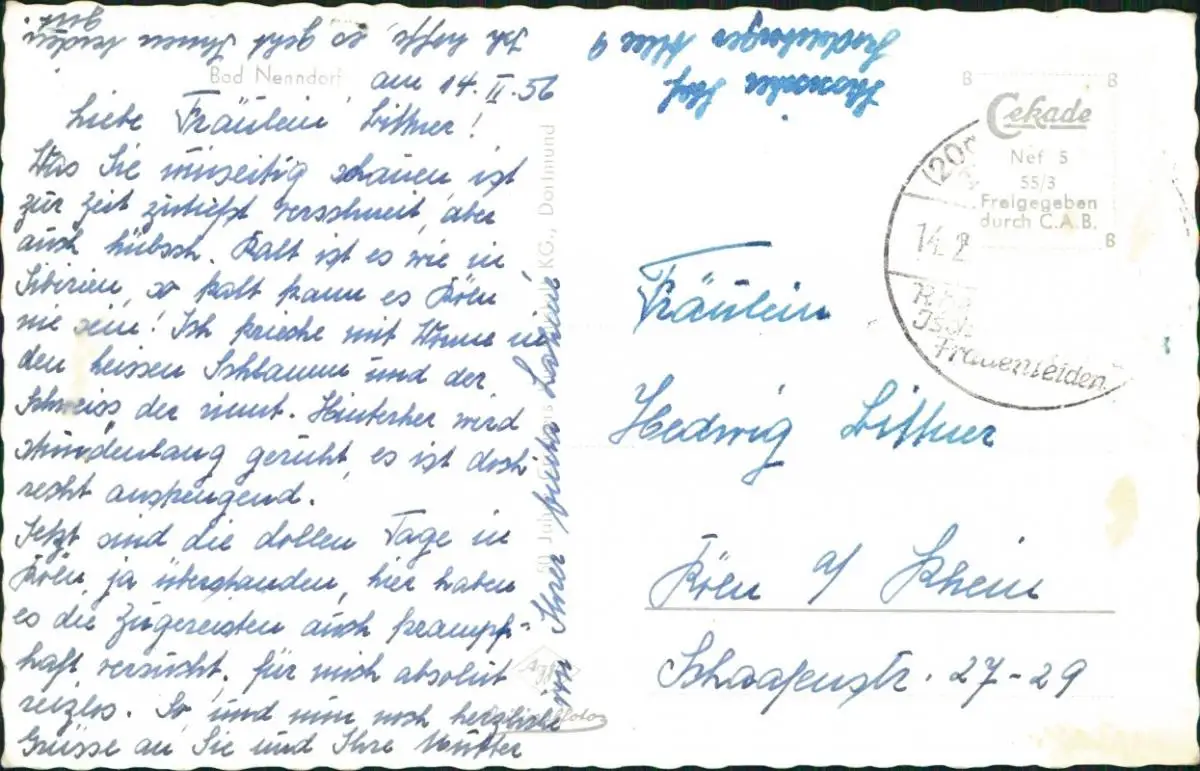 Bad Nenndorf
am 14.II.56
Liebe Fräulein Bittner!
Was Sie umseitig schauen, ist
zur Zeit zutiefst verschneit, aber
auch hübsch. Kalt ist es wie in
Sibirien, so kalt kann es Köln
nie sein! Ich krieche mit Wonne in
den heissen Schlamm und der
Schweiss der rinnt. Hinterher wird
stundenlang geruht, es ist doch
recht anstrengend.
Jetzt sind die dollen Tage in
Köln ja überstanden, hier haben
es die Zugereisten auch krampf-
haft versucht, für mich absolut
reizlos. So, und nun noch herzliche
Grüsse an Sie und Ihre Mutter
von Ihrer
Ich hoffe, es geht Ihnen beiden
gut.
KG., Dortmund
Agfa
Cekade
Nef 5
55/3
Freigegeben
durch C.A.B.
B
B
B
(20
14.2
Frauenleiden
Fräulein
Hedwig Bittner
Köln a/ Rhein
Schaafenstr. 27-29